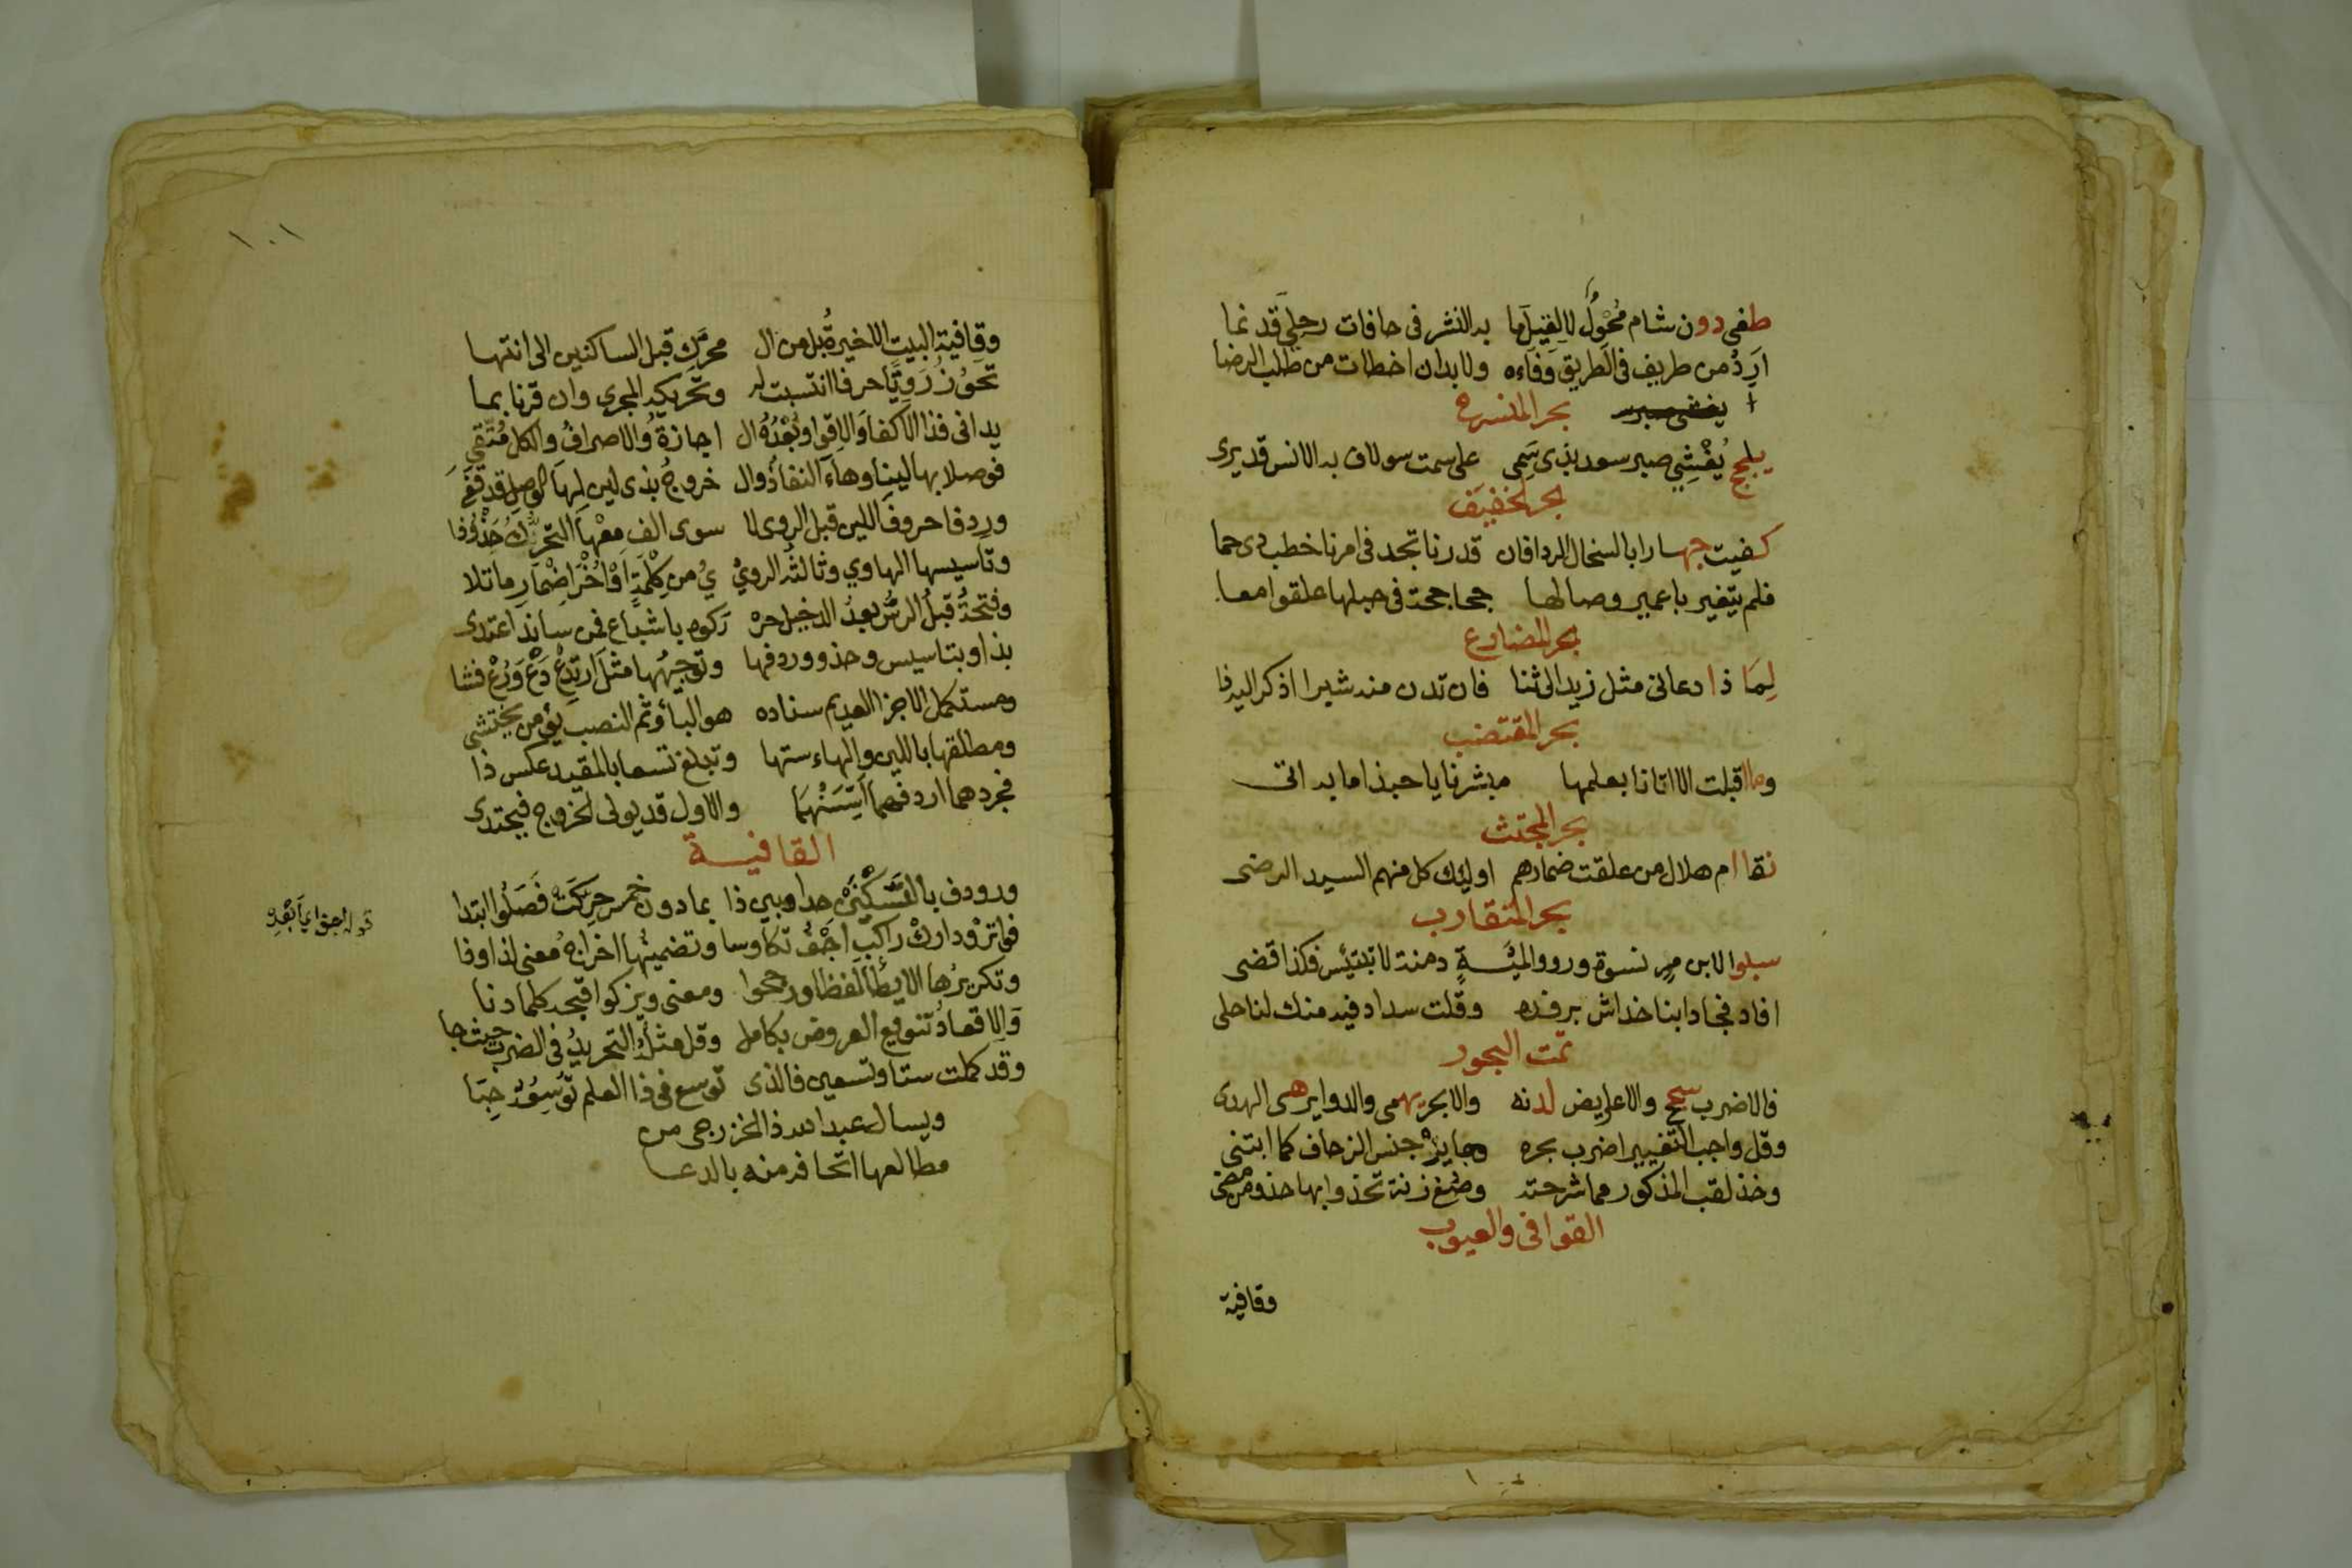 طغى دون شام محول لا لقيل ما به النشر فى حافات رحلى قد نما
ارد من طريف فى الطريق وفاءه ولا بد ان اخطات من طلب الرضا
بحر المنسرح
يلجج يفشي صبر سعد بذى سمى على سمت سولاف به الانس قد يرى
بحر الخفيف
كفيت جهارا بالسخال الردا فان قدرنا تجد فى امرنا خطب ذى حما
فلم يتغير يا عمير وصالها جحاجحة فى حبلها علقوا معا
بحر المضارع
لما ذا دعانى مثل زيد الى ثنا فان تدن منه شبرا اذكر اليه فا
بحر المقتضب
وما اقبلت الا اتانا بعلمها مبشرنا يا حبذا ما به اتى
بحر المجتث
نقا ام هلال من علقت ضمارهم اوليك كل منهم السيد الرضى
بحر المتقارب
سبلوا لابن مر نسوة ورووا لمية دمنة لا تبتئس فكذا قضى
افاد فجاد ابنا خداش برفده وقلت سدادا فيه منك لنا حلى
تمت البحور
فالاضرب سجح والاعاريض لدنه والابحر يهمى والدواير هى الهدى
وقل واجب التغيير اضرب بحره وجايزه جنس الزحاف كما ابتنى
وخذ لقب المذكور مما شرحته وصغ زنة تحذوا بها حذو من مضى
القوافى والعيوب
وقافية
١٠١
وقافية البيت الاخيرة بل من ال محرك قبل الساكنين الى انتها
تحوز رويا حرفا انتسبت له وتحريكه المجرى وان قرنا بما
يدانى فذا الاكفا والاقوا وبعده ال اجازة والاصراف والكل متقى
فوصلا بها لينا وهاء النفاذ وال خروج بذى لين لها الوصل قد قفى
وردفا حروف اللين قبل الروى لا سوى الف معها التحرك حذوفا
وتاسيسها الهاوي وثالثه الروي ي من كلمة او اخر اضمار ما تلا
وفتحة قبل الرس بعد الدخيل حر ركوه باشباع فمن ساند اعتدى
بذا وبتاسيس وحذو وردفها وتوجيهها مثل ارتدع دع ورع فشا
ومستكمل الاجزا العديم سناده هو البأو ثم النصب يؤمن يختشى
ومطلقها باللين والهاء ستها وتبلغ تسعا بالمقيد عكس ذا
فجردهما اردفهما اسسنهما والاول قد يولى الخروج فيحتدى
القافيـة
وردوف بالسكنين حدا وبين ذا بما دون خمس حركت فصلوا ابتدا
فواتر ودارك راكب اجف تكاوسا وتضمينها اخراج معنى لذا وفا
وتكريرها الايطا لفظا ورجحوا ومعنى ويزكوا قبحه كلما دنا
والاقعاد تنويع العروض بكامل وقل مثله التحريد فى الضرب حيث جا
وقد كملت ستا وتسعين فالذى توسع فى ذا العلم توسعه حبا
ويسال عبد الله ذا الخزرجى من
مطالعها اتحافه منه بالدعا